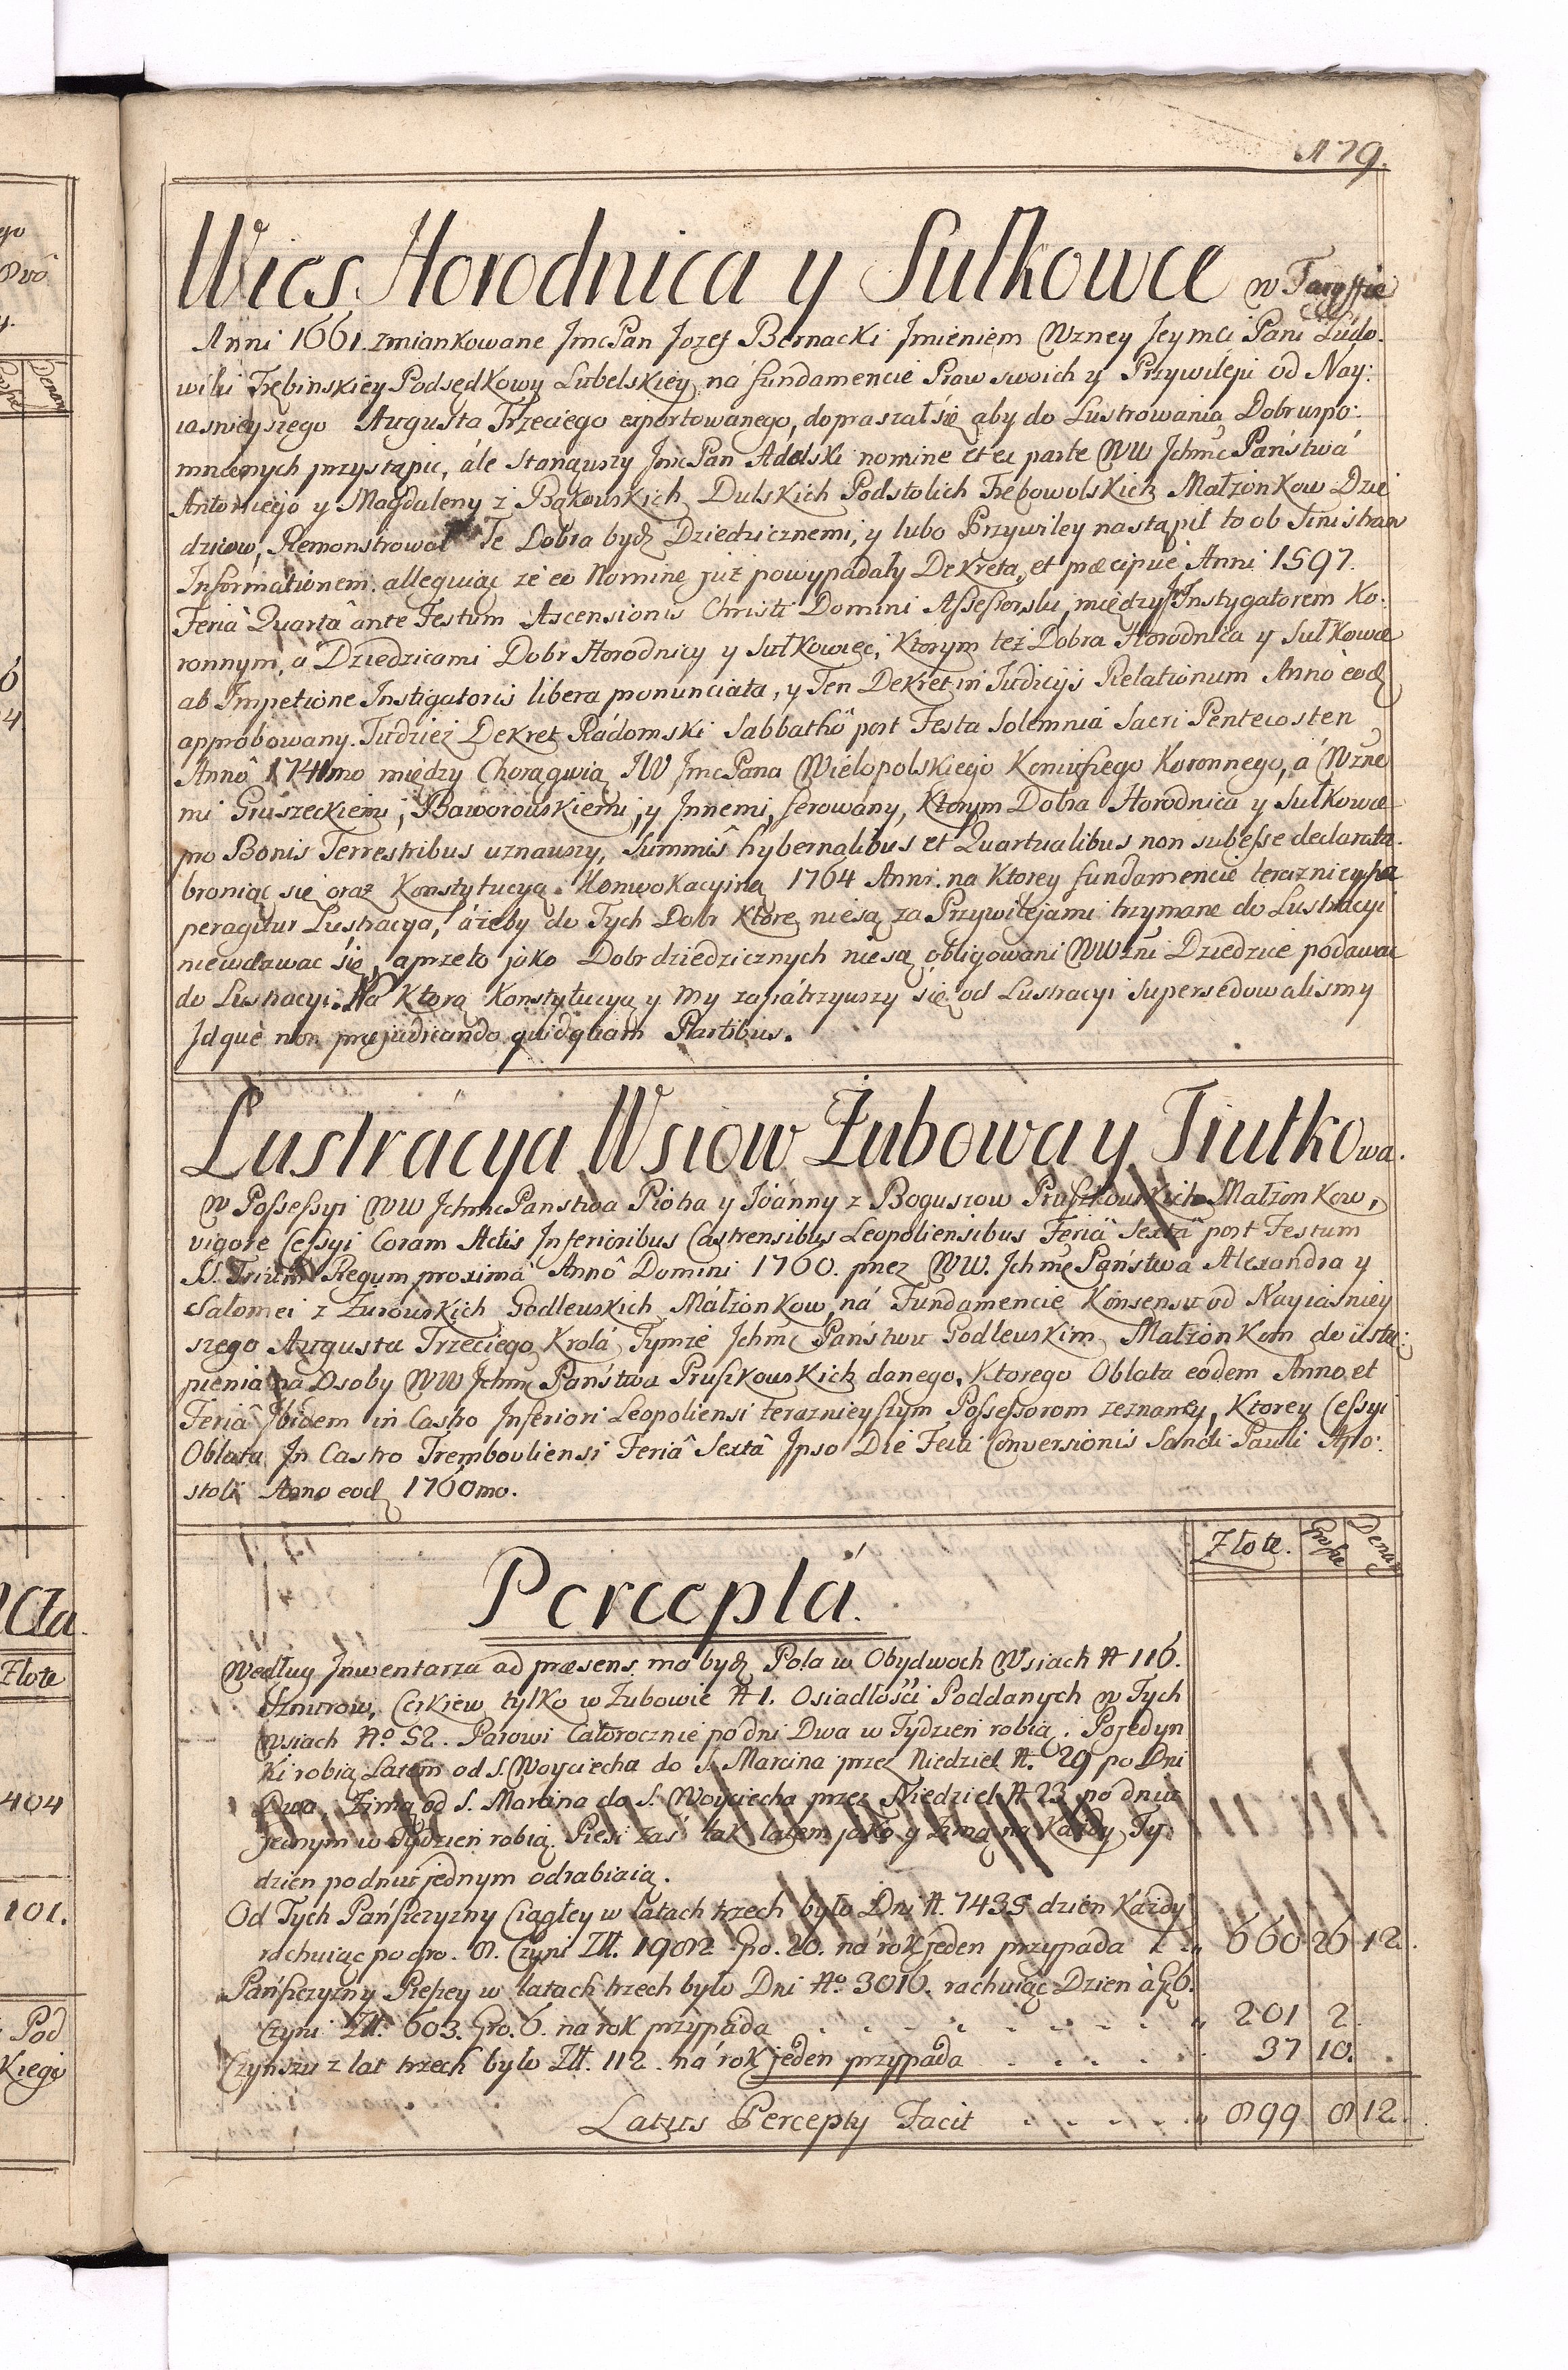 179.
Wies Horodnica y Sułkowce w Taryffie
Anni 1661. zmiankowane JmcPan Jozef Bernacki Jmieniem Wzney Jeymci Pani Ludo.
wiki Trębinskiey Podsędkowy Lubelskiey na fundamencie Praw swoich y Przywileju od Nay:
iasnieyszego Augusta Trzeciego exportowanego, dopraszał się aby do Lustrowania Dobr wspo:
mnionych przystąpic, ále Stanąwszy JmcPan Adelski nomine et ex parte WW Jchmć Państwá
Antoniego y Magdaleny z Bąkowskich Dulskich Podstolich Trębowolskich Małzonkow Dzie
dzicow, Remonstrował Te Dobra bydź Dziedzicznemi, y lubo Przywiley nastąpił to ob Sinistram
Informationem. alleguiąc ze eo Nomine już powypadały Dekreta, et præcipuè Anni 1597.
Ferià Quartâ ante Festum Ascensionis Christi Domini Assessorski, między Instygatorem Ko:
ronnym, á Dziedzicami Dobr Horodnicy y Sułkowiec, Ktorym też Dobra Horodnica y Sułkowce
ab Impetione Instigatoris libera pronunciata, y Ten Dekret in Judicijs Relationum Anno eod
approbowany. Tudzież Dekret Rádomski Sabbathô post Festa Solemnia Sacri Pentecosten
Annô 1741mo między Chorągwią JW JmcPana Wielopolskiego Koniuszego Koronnego, á Wzne
mi Giuszeckiemi, Baworowskiemi, y Innemi, ferowany, Ktorym Dobra Horodnica y Sułkowce
pro Bonis Terrestribus uznawszy, Summis hybernalibus et Quartualibus non subesse declarata.
broniąc się oraz Konstytucyą Konwokacyiną 1764 Anni. na Ktorey fundamencie teraznieysza
peragitur Lustracya, ażeby do Tych Dobr Ktore niesą za Przywilejami trzymane do Lustracyi
niewdawac się, aprzeto jako Dobr dziedzicznych niesą obligowani WWzni Dziedzice podawac
do Lustracyi. Na Ktorą Konstytucyą y My zapátrzywszy się od Lustracyi Supersedowalismy
Jdque non præjudicando quidquam Partibus.
Lustrácya Wsiow Żubowa y Tiutkowa.
w Possessyi WW JchmcPanstwa Piotra y Joánny z Boguszow Pruszkowskich Małzonkow,
vigore Cessyi Coram Actis Inferioribus Castrensibus Leopoliensibus Feriâ Sextâ post Festum
SS. Trium Regum proximâ Annô Domini 1760. przez WW. Jchmć Państwá Alexandra y
Salomei z Zurowskich Godlewskich Małzonkow, ná Fundamencie Konsensu od Nayiasniey
szego Augusta Trzeciego Krolá Tymże Jchmć Państwu Godlewskim Małzonkom do ustą:
pienia na Osoby WW Jchmć Państwa Pruszkowskich danego, Ktorego Oblata eodem Anno, et
Feriâ Jbidem in Castro Inferiori Leopoliensi teraznieyszym Possessorom zeznaney, Ktorey Cessyi
Oblata In Castro Trembowliensi Feriâ Sextâ Jpso Die Festi Conversionis Sancti Pauli Apo:
stoli Anno eod 1760mo.
Złote. Grosze Denar
Perceptá.
Według Inwentarza ad præsens ma bydź Pola w Obydwoch Wsiach N 116.
Sznurow, Cerkiew tylko w Żubowie N 1. Osiadłości Poddanych w Tych
Wsiach No 52. Parowi Całorocznie po dni Dwa w Tydzień robią. Pojedyn
ki robią Latem od S. Woyciecha do S. Marcina przez Niedziel N. 29 po Dni
Dwa, Zimą od S. Marcina do S. Woyciecha przez Niedziel N 23 po dniu
jednym w Tydzień robią. Piesi zaś tak latem jako y zimą na Kazdy Ty.
dzien po dniu jednym odrabiaią.
Od Tych Pańszczyzny Ciągłey w latach trzech było Dni N. 7435 dzien Kazdy
rachuiąc po gro. 8. Czyni Zł. 1982 Gro. 20. ná rok jeden przypada 660 26 12.
Pańszczyzny Pieszey w latach trzech było Dni No. 3016. rachuiąc Dzien à g. 6.
Czyni Zł. 603. Gro. 6. ná rok przypada 201 2.
Czynszu z lat trzech było Zł. 112. ná rok jeden przypada 37 10.
Latus Percepty Facit 899 8 12.